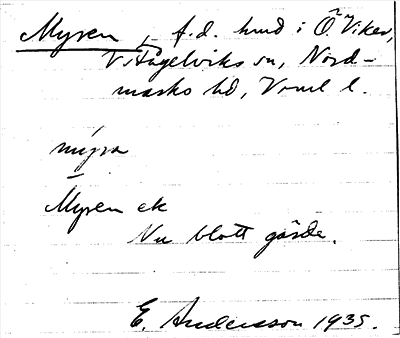 Myren, f.d. hmd i Ö. Viker,
V. Fågelviks sn, Nord-
marks hd, Vrml l.
mýra
Myren ek
Nu blott gärde.
E. Andersson 1935.